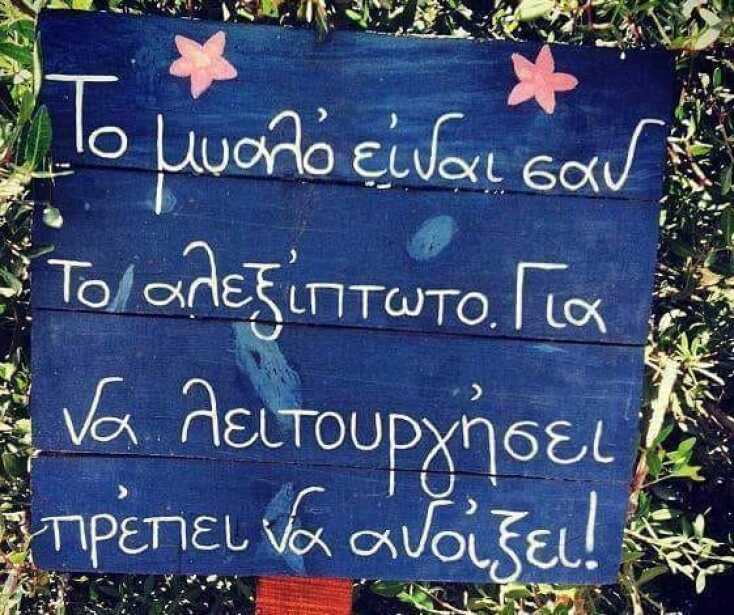 Το μυαλό είναι σαν
το αλεξίπτωτο. Για
να λειτουργήσει
πρέπει να ανοίξει!